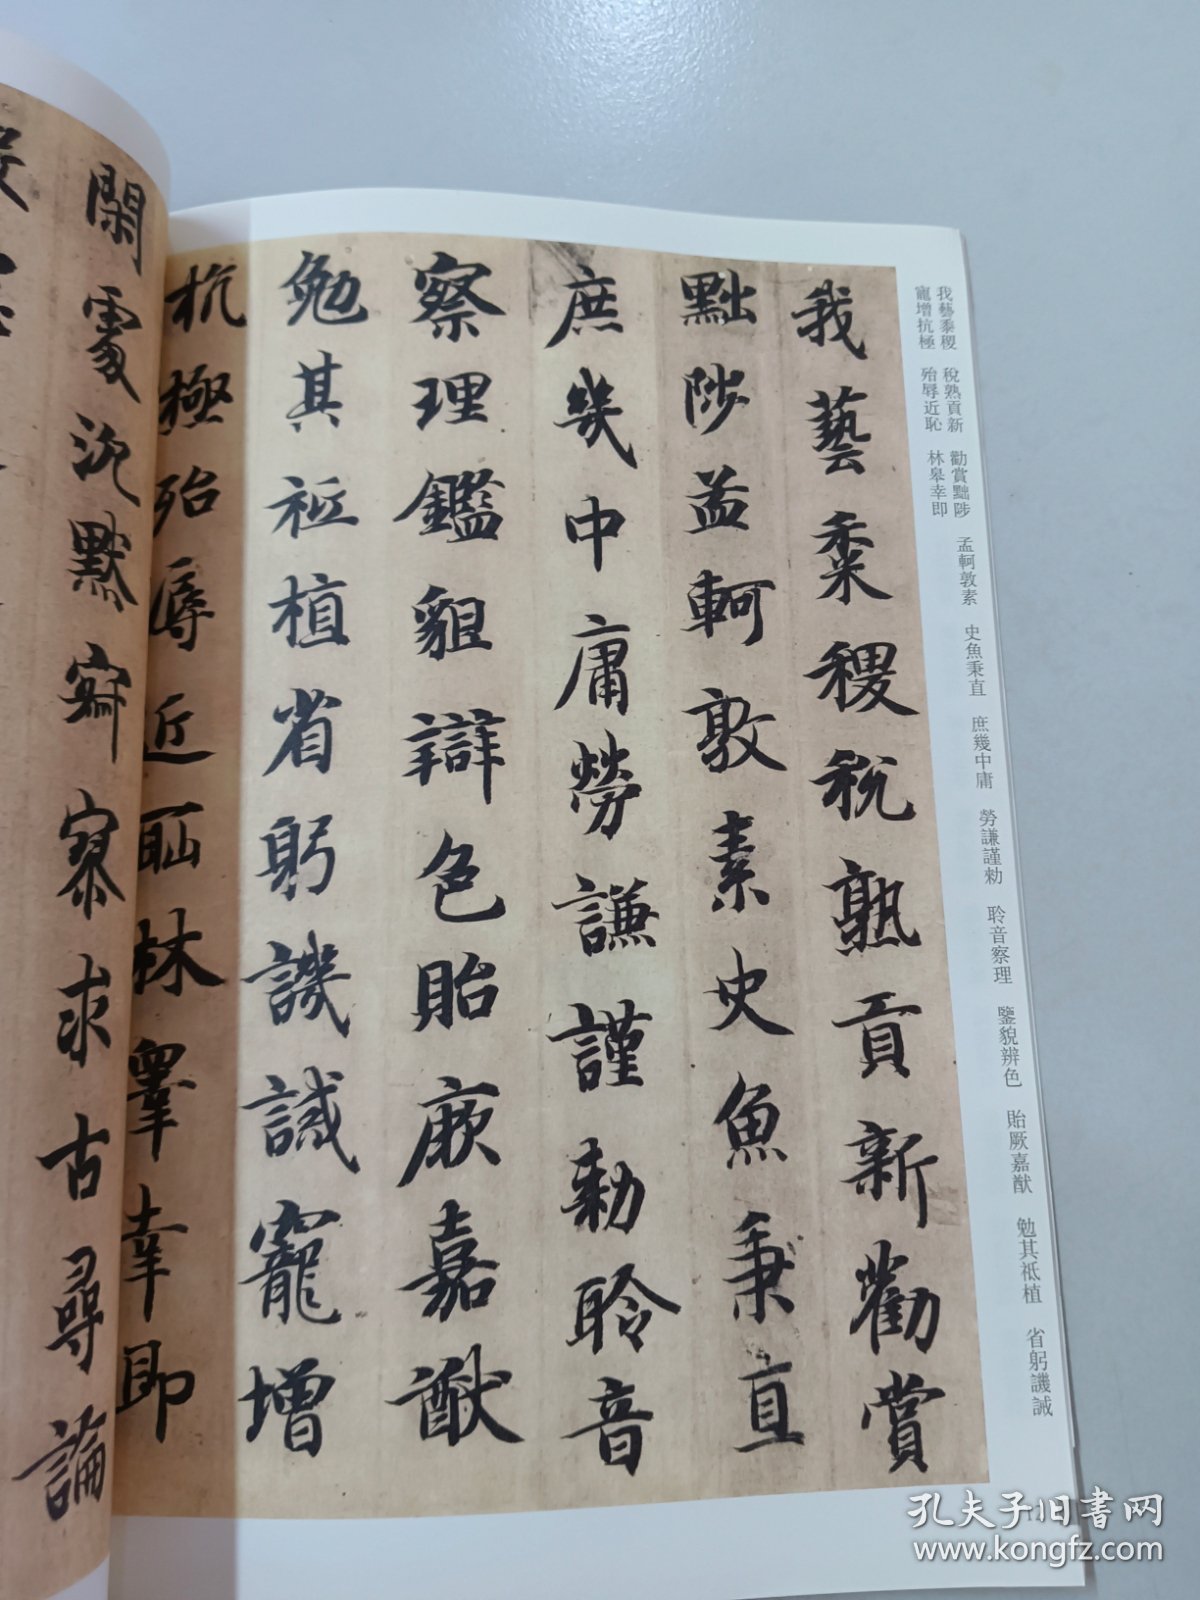 我藝黍稷 稅熟貢新 勸賞黜陟 孟軻敦素 史魚秉直 庶幾中庸 勞謙謹勑 聆音察理 鑒貌辨色 貽厥嘉猷 勉其祗植 省躬譏誡
寵增抗極 殆辱近恥 林皋幸即
我藝黍稷稅熟貢新勸賞
黜陟孟軻敦素史魚秉直
庶幾中庸勞謙謹勑聆音
察理鑑貌辯色貽厥嘉猷
勉其祗植省躬譏誡寵增
抗極殆辱近恥林睾幸即
閑處沉默寂寥求古尋論
孔夫子旧书网
www.kongfz.com